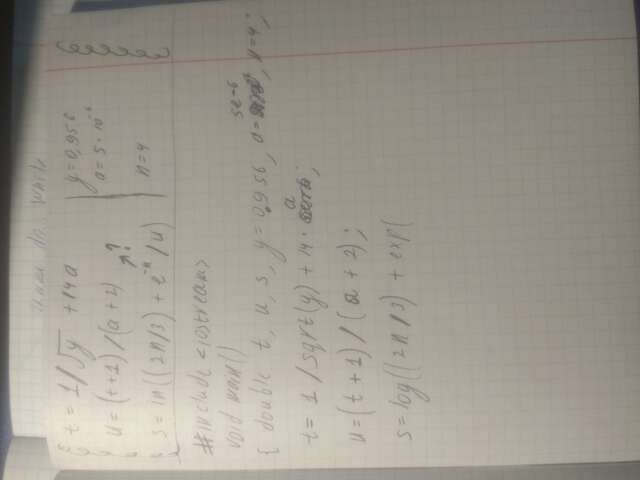 t = 1/√y + 14a
u = (t+1) / (a+2)
s = ln((2n/3) + e⁻ⁿ/u) ??
y = 0,956
a = 5 · 10⁻⁶
n = 4
#include <iostream>
void main()
{ double t, u, s, y=0.956, a=5e-6, n=4;
t = 1 / sqrt(y) + 14 · a;
u = (t + 1) / (a + 2);
s = log((2n/3) + exp(